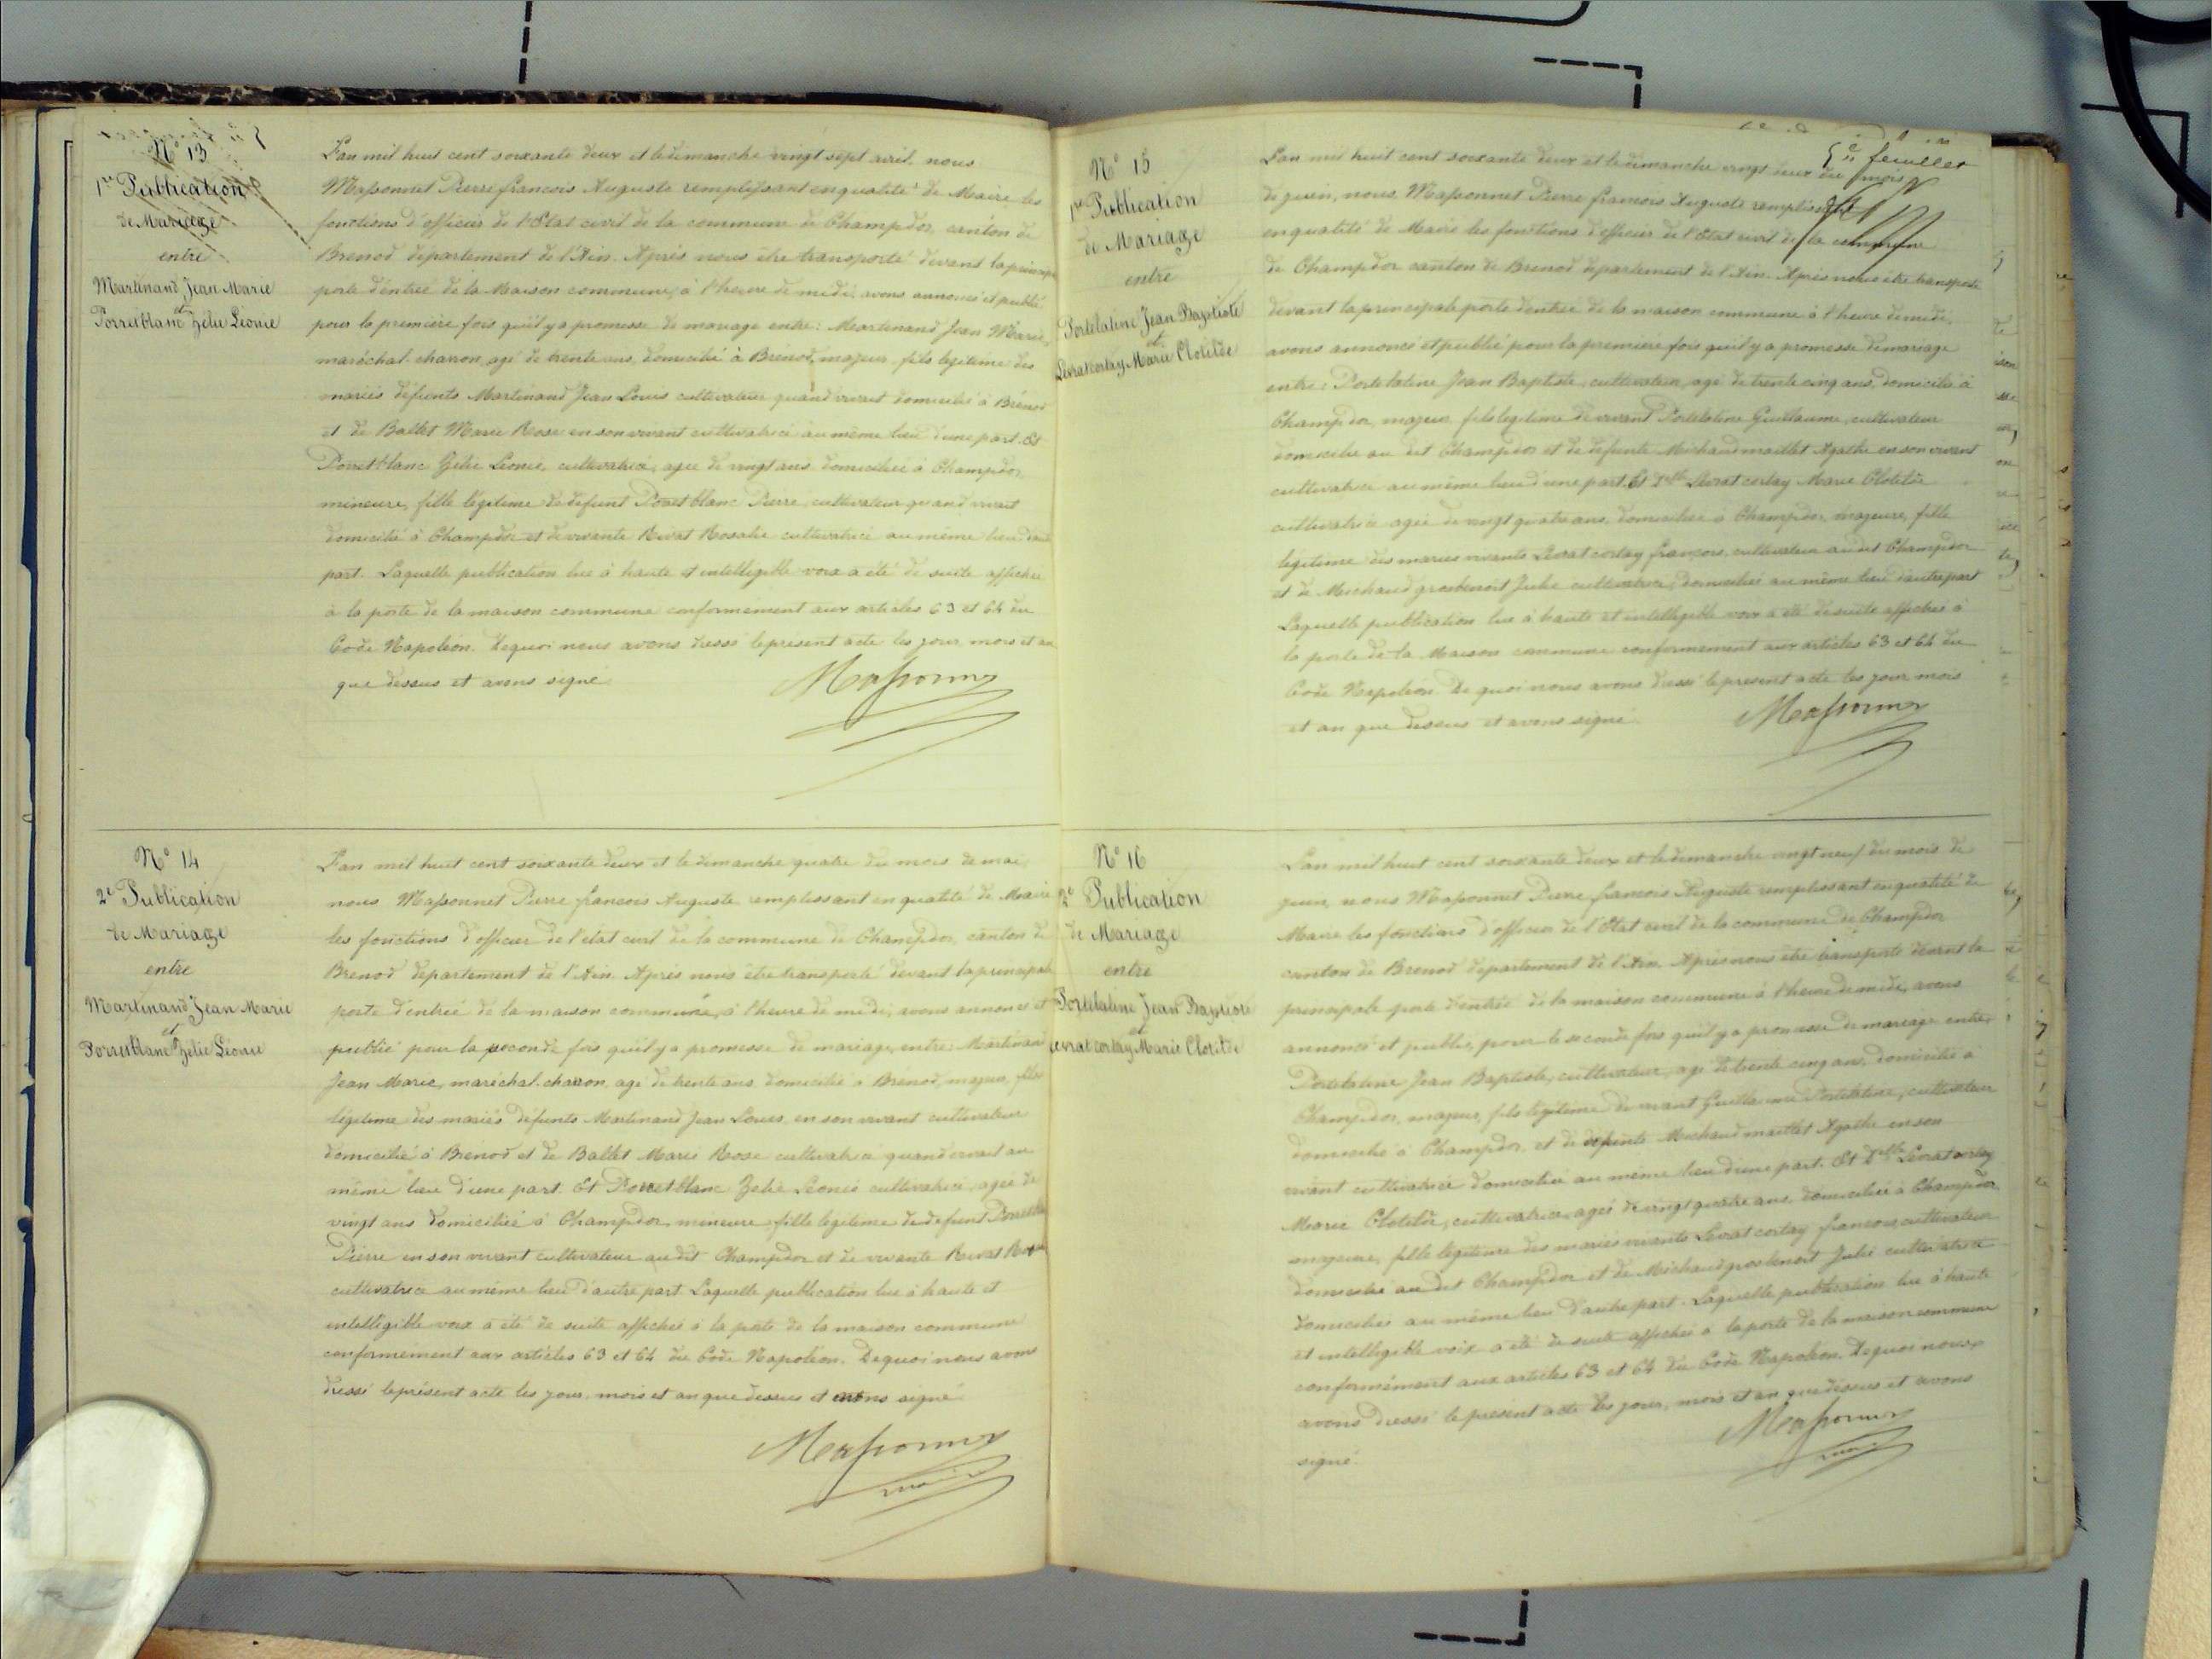 N° 13
1re Publication
de Mariage
entre
Martinand Jean Marie
et
Porretblanc Zélie Léonie
L'an mil huit cent soixante deux et le dimanche vingt sept avril nous
Massonnet Pierre francois Auguste remplissant en qualité de Maire les
fonctions d'officier de l'Etat civil de la commune de Champdor, canton de
Brenod département de l'Ain. Après nous être transporté devant la principale
porte d'entrée de la Maison commune, à l'heure de midi, avons annoncé et publié
pour la première fois qu'il y a promesse de mariage entre: Martinand Jean Marie,
maréchal-charron, agé de trente ans, domicilié à Brénod, majeur, fils légitime des
mariés défunts Martinand Jean Louis cultivateur quand vivait domicilié à Brénod
et de Ballet Marie Rose en son vivant cultivatrice au même lieu d'une part. Et
Porretblanc Zélie Léonie, cultivatrice, agée de vingt ans domiciliée à Champdor,
mineure, fille légitime de défunt Porretblanc Pierre, cultivateur quand vivait
domicilié à Champdor et de vivante Rivat Rosalie cultivatrice au même lieu d'autre
part. Laquelle publication lue à haute et intelligible voix a été de suite affichée
à la porte de la maison commune conformément aux articles 63 et 64 du
Code Napoléon. Dequoi nous avons dressé le présent acte les jour, mois et an
que dessus et avons signé.
Massonnet
N° 14
2e Publication
de Mariage
entre
Martinand Jean Marie
et
Porretblanc Zélie Léonie
L'an mil huit cent soixante deux et le dimanche quatre du mois de mai,
nous Massonnet Pierre francois Auguste remplissant en qualité de Maire
les fonctions d'officier de l'état civil de la commune de Champdor, canton de
Brenod département de l'Ain. Après nous être transporté devant la principale
porte d'entrée de la maison commune, à l'heure de midi, avons annoncé et
publié pour la seconde fois qu'il y a promesse de mariage, entre: Martinand
Jean Marie, maréchal-charron, agé de trente ans domicilié à Brénod, majeur, fils
légitime des mariés défunts Martinand Jean Louis, en son vivant cultivateur
domicilié à Brénod et de Ballet Marie Rose cultivatrice quand vivait au
même lieu d'une part. Et Porretblanc Zélie Léonie cultivatrice, agée de
vingt ans domiciliée à Champdor mineure, fille légitime de défunt Porretblanc
Pierre en son vivant cultivateur au dit Champdor et de vivante Rivat Rosalie
cultivatrice au même lieu d'autre part. Laquelle publication lue à haute et
intelligible voix a été de suite affichée à la porte de la maison commune
conformément aux articles 63 et 64 du Code Napoléon. Dequoi nous avons
dressé le présent acte les jour, mois et an que dessus et avons signé
Massonnet
maire
5e feuillet
N° 15
1re Publication
de Mariage
entre
Portelatine Jean Baptiste
et
Levratcortay Marie Clotilde
L'an mil huit cent soixante deux et le dimanche vingt deux du mois
de juin, nous Massonnet Pierre francois Auguste remplissant
en qualité de Maire les fonctions d'officier de l'Etat civil de la commune
de Champdor canton de Brenod département de l'Ain. Après nous être transporté
devant la principale porte d'entrée de la maison commune à l'heure de midi,
avons annoncé et publié pour la première fois qu'il y a promesse de mariage
entre: Portelatine Jean Baptiste, cultivateur, agé de trente cinq ans, domicilié à
Champdor, majeur, fils légitime de vivant Portelatine Guillaume, cultivateur
domicilié au dit Champdor et de défunte Michaudmaillet Agathe en son vivant
cultivatrice au même lieu d'une part. Et Delle Levrat cortay Marie Clotilde
cultivatrice agée de vingt quatre ans, domiciliée à Champdor, majeure, fille
légitime des mariés vivants Levrat cortay francois, cultivateur au dit Champdor
et de Michaud grosbenoit Julie cultivatrice, domiciliés au même lieu d'autre part
Laquelle publication lue à haute et intelligible voix a été de suite affichée à
la porte de la Maison commune conformément aux articles 63 et 64 du
Code Napoléon. De quoi nous avons dressé le présent acte les jour mois
et an que dessus et avons signé.
Massonnet
N° 16
2e Publication
de Mariage
entre
Portelatine Jean Baptiste
et
Levrat cortay Marie Clotilde
L'an mil huit cent soixante deux et le dimanche vingt neuf du mois de
juin, nous Massonnet Pierre francois Auguste remplissant en qualité de
Maire les fonctions d'officier de l'Etat civil de la commune de Champdor
canton de Brenod département de l'Ain. Après nous être transporté devant la
principale porte d'entrée de la maison commune à l'heure de midi, avons
annoncé et publié, pour la seconde fois qu'il y a promesse de mariage entre
Portelatine Jean Baptiste, cultivateur, agé de trente cinq ans, domicilié à
Champdor, majeur, fils légitime de vivant Guillaume Portelatine, cultivateur
domicilié à Champdor, et de défunte Michaud maillet Agathe en son
vivant cultivatrice domiciliée au même lieu d'une part. Et Delle Levrat cortay
Marie Clotilde, cultivatrice, agée de vingt quatre ans, domiciliée à Champdor
majeure, fille légitime des mariés vivants Levrat cortay francois, cultivateur
domicilié au dit Champdor et de Michaud grosbenoit Julie cultivatrice
domiciliés au même lieu d'autre part. Laquelle publication lue à haute
et intelligible voix a été de suite affichée à la porte de la maison commune
conformément aux articles 63 et 64 du Code Napoléon. De quoi nous
avons dressé le présent acte les jour, mois et an que dessus et avons
signé.
Massonnet
maire